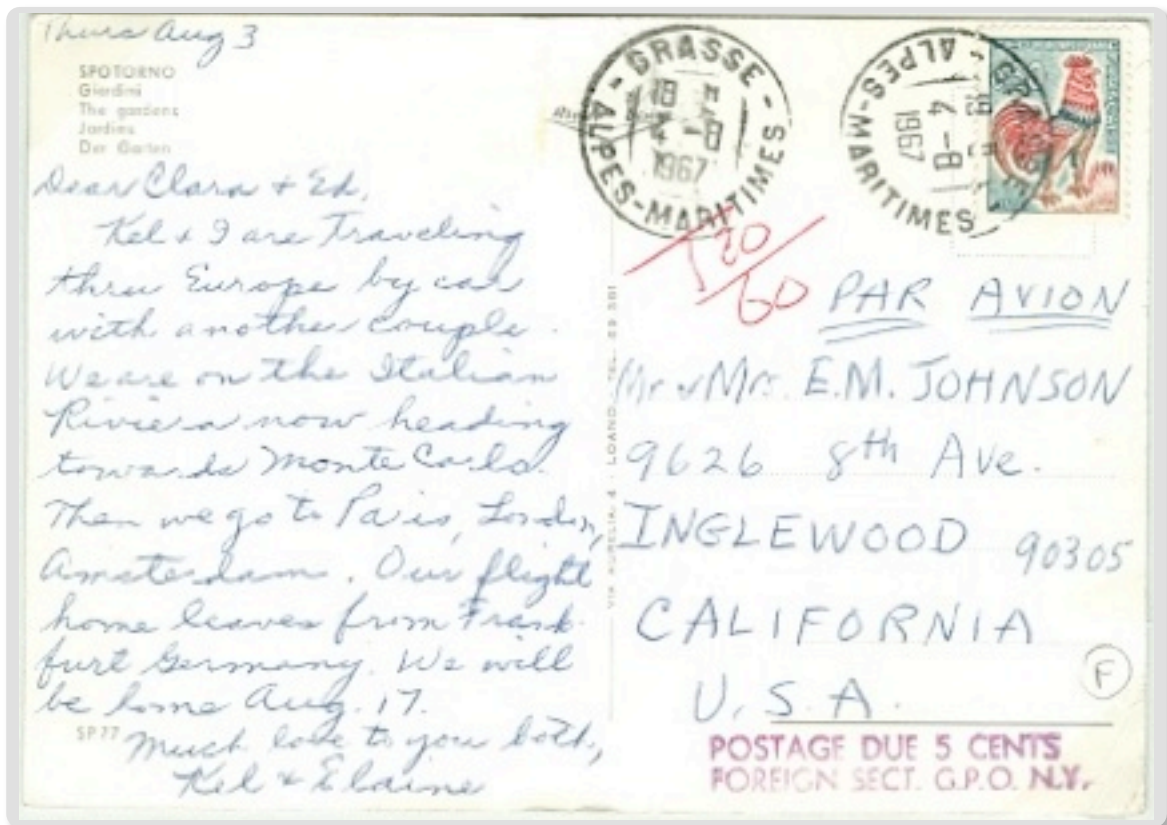 Thurs Aug 3
SPOTORNO
Giardini
The gardens
Jardins
Der Garten
Dear Clara + Ed,
Kel + I are Traveling
thru Europe by car
with another couple.
We are on the Italian
Riviera now heading
towards Monte Carlo.
Then we go to Paris, London,
Amsterdam. Our flight
home leaves from Frank-
furt Germany. We will
be home Aug. 17.
Much love to you both,
Kel + Elaine
SP 77
GRASSE
18
4-8
1967
ALPES-MARITIMES
GRASSE
18
4-8
1967
ALPES-MARITIMES
T 20
60
VIA AURELIA, 4 - LOANO - TEL.
PAR AVION
Mr & Mrs. E.M. JOHNSON
9626 8th Ave.
INGLEWOOD 90305
CALIFORNIA
U.S.A.
F
POSTAGE DUE 5 CENTS
FOREIGN SECT. G.P.O. N.Y.